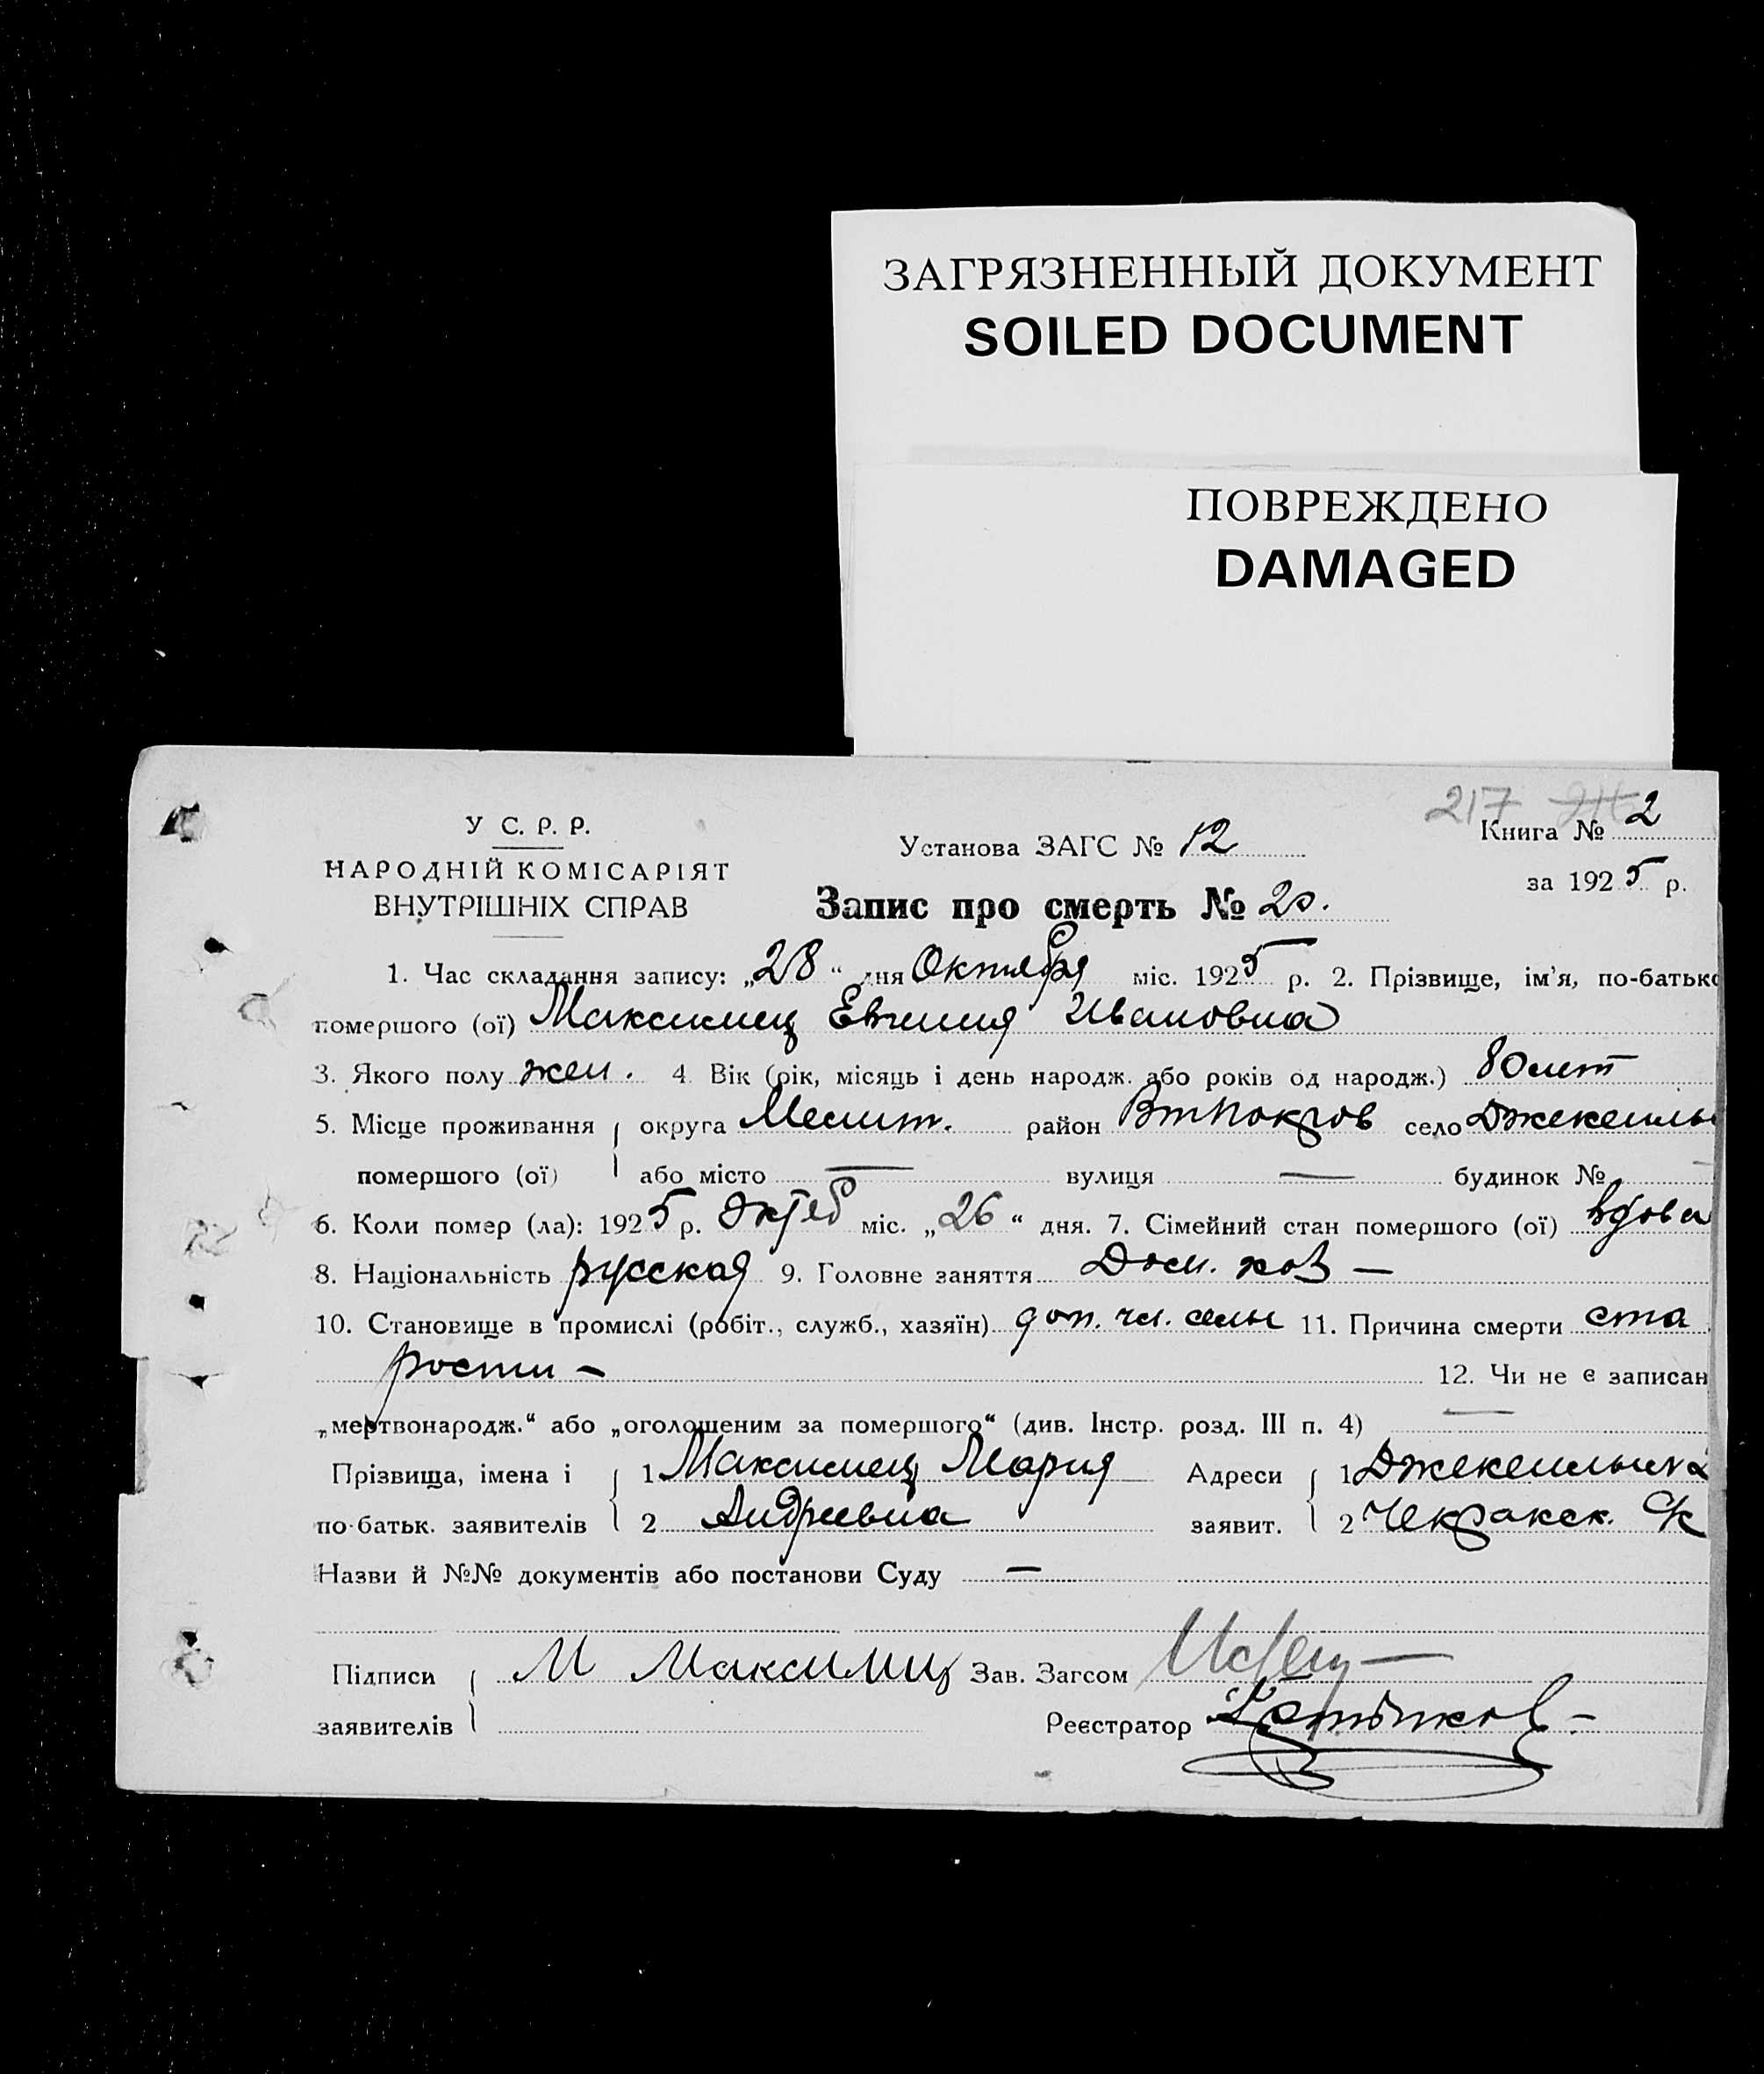 ЗАГРЯЗНЕННЫЙ ДОКУМЕНТ
SOILED DOCUMENT
ПОВРЕЖДЕНО
DAMAGED
217
У С. Р. Р.
НАРОДНІЙ КОМІСАРІЯТ
ВНУТРІШНІХ СПРАВ
Установа ЗАГС № 12
Книга № 2
за 1925 р.
Запис про смерть № 20.
1. Час складання запису: „28“ дня Октября міс. 1925 р. 2. Прізвище, ім'я, по-батьк
помершого (ої) Максимец Евгения Ивановна
3. Якого полу жен. 4. Вік (рік, місяць і день народж. або років од народж.) 80 лет
5. Місце проживання округа Мелит. район Втпокров село Джекельн
помершого (ої) або місто — вулиця — будинок №
6. Коли помер (ла): 1925 р. Октяб міс. „26“ дня. 7. Сімейний стан помершого (ої) вдова
8. Національність русская 9. Головне заняття Дом. хоз —
10. Становище в промислі (робіт., служб., хазяїн) доп. чл. семьи 11. Причина смерти ста
рости — 12. Чи не є записан
„мертвонародж.“ або „оголошеним за помершого“ (див. Інстр. розд. III п. 4) —
Прізвища, імена і 1 Максимец Мария Адреси 1
по-батьк. заявителів 2 Андреевна заявит. 2 Чекракск.
Назви й №№ документів або постанови Суду —
Підписи М Максимиц Зав. Загсом
заявителів Реєстратор